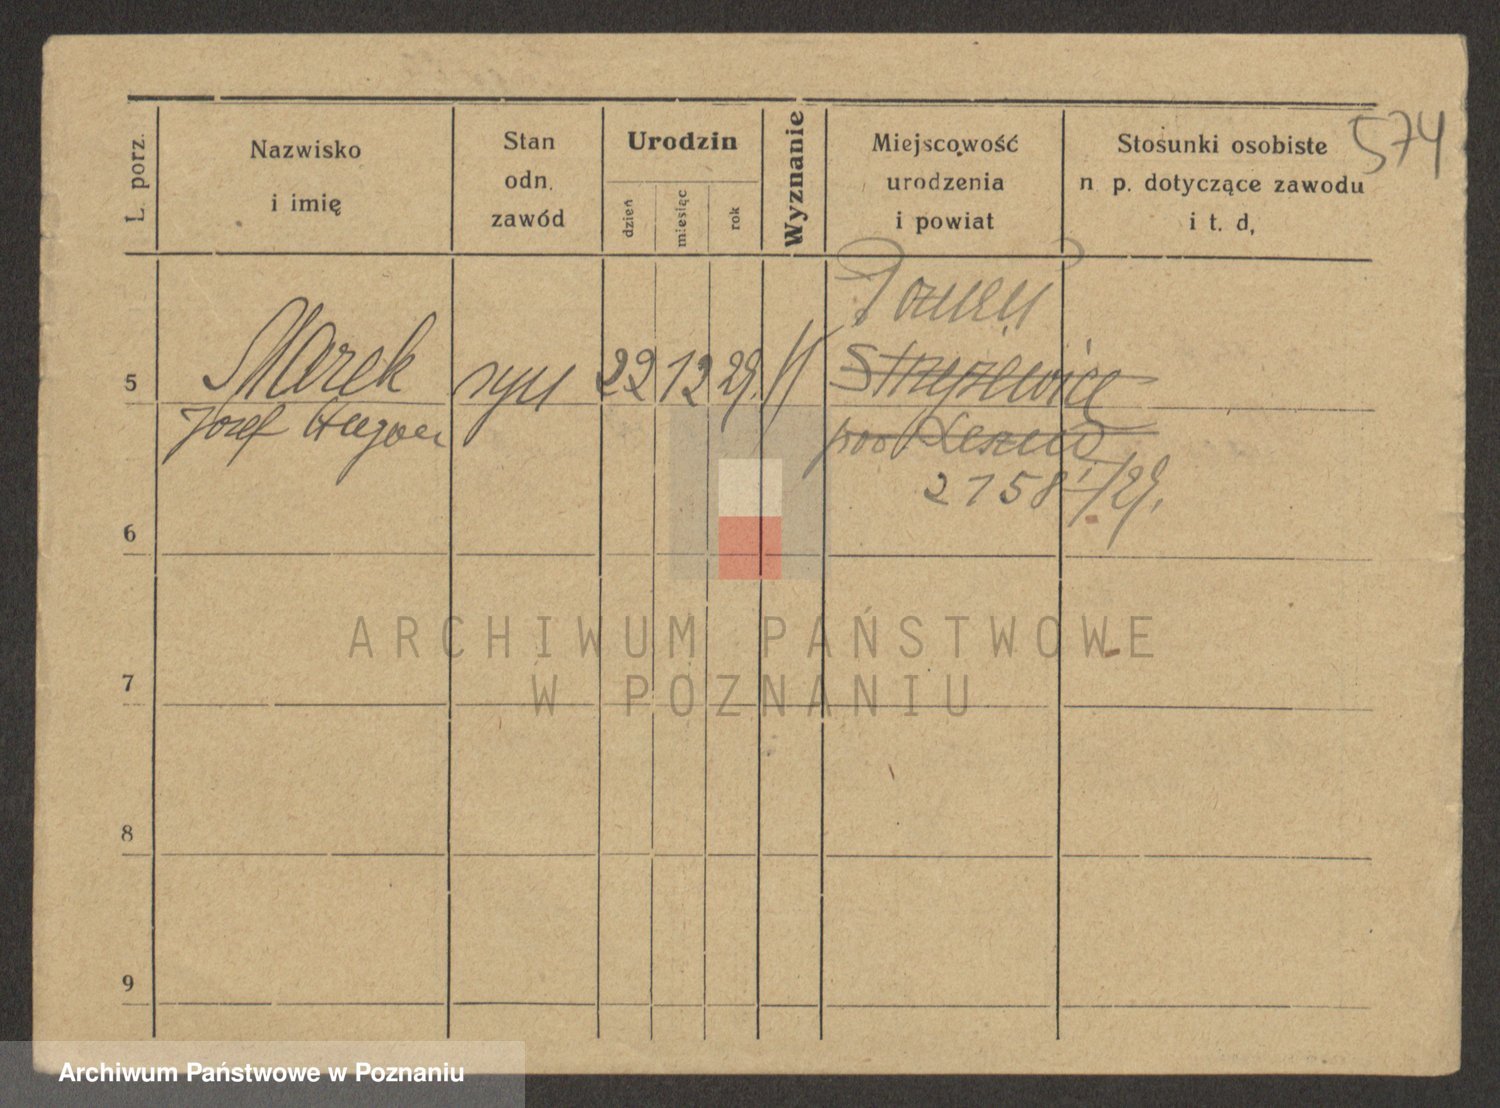 574
L. porz.
Nazwisko
i imię
Stan
odn.
zawód
Urodzin
dzień
miesięc
rok
Wyznanie
Miejscowość
urodzenia
i powiat
Stosunki osobiste
n p. dotyczące zawodu
i t. d,
Poznań
5 Marek syn 22 12 29. Strzyżewice
Józef pow Leszno
2158 /29.
6
7
8
9
ARCHIWUM PAŃSTWOWE
W POZNANIU
Archiwum Państwowe w Poznaniu